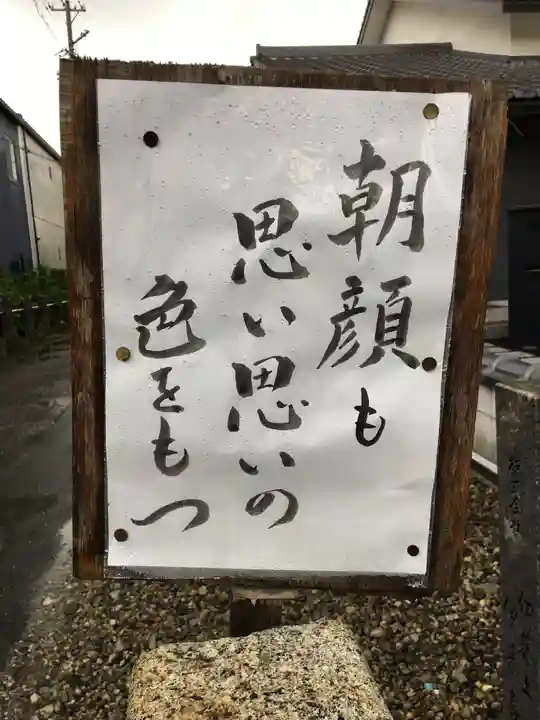 朝顔も
思い思いの
色をもつ